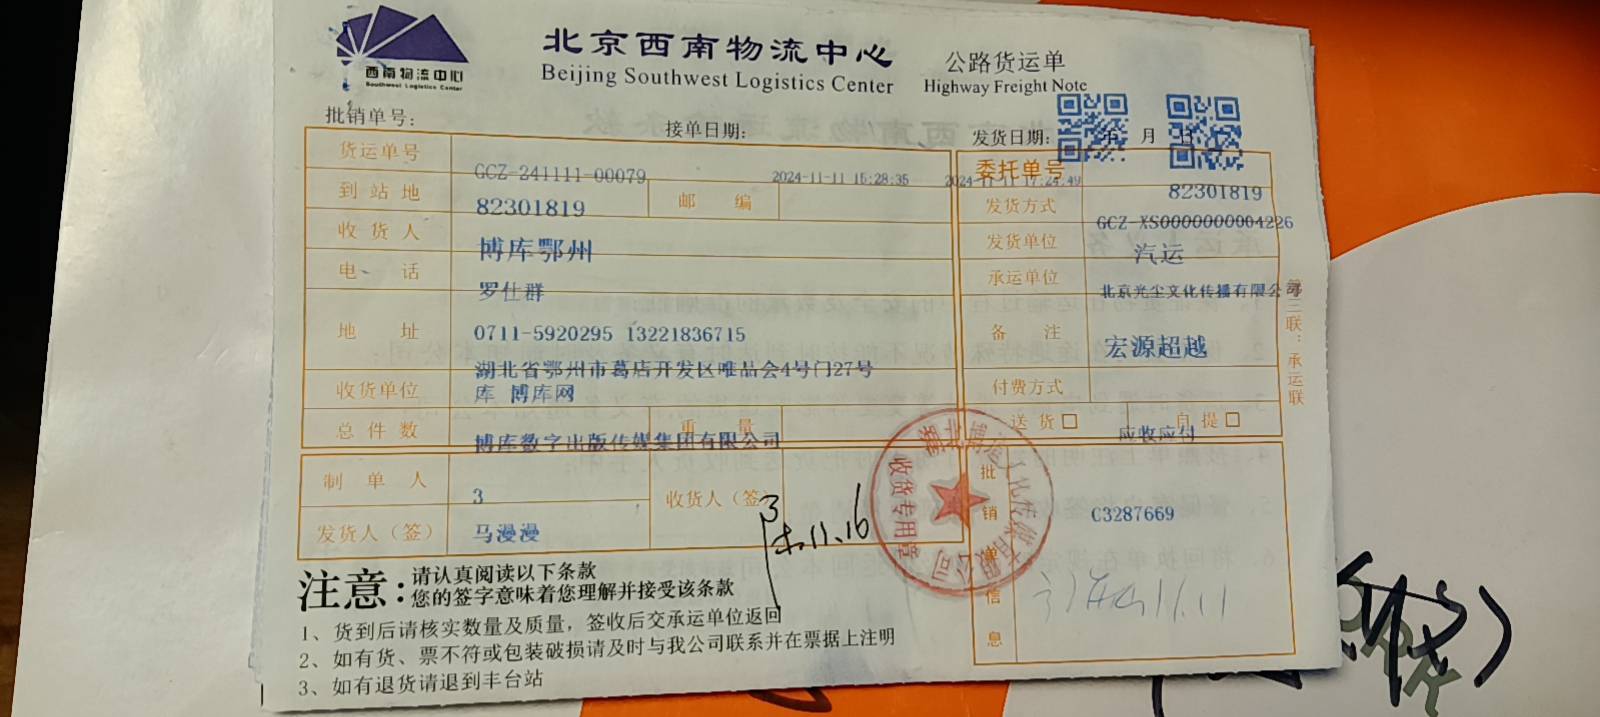 西南物流中心
Southwest Logistics Center
北京西南物流中心
Beijing Southwest Logistics Center
公路货运单
Highway Freight Note
批销单号：
接单日期：
发货日期： 年 月 日
货运单号 GCZ-241111-00079 2024-11-11 15:28:35 2024-11-11 17:24:49
委托单号 82301819
到站地 82301819 邮编
发货方式 GCZ-XS0000000004226
收货人 博库鄂州
发货单位 汽运
电话 罗仕群
承运单位 北京光尘文化传播有限公司
地址 0711-5920295 13221836715
湖北省鄂州市葛店开发区唯品会4号门27号
库 博库网
备注 宏源超越
收货单位
付费方式
总件数 博库数字出版传媒集团有限公司 重量
送货□ 自提□
应收应付
制单人 3
收货人（签）
发货人（签） 马漫漫
3
11.16
批销单信息
C3287669
11.11
收货专用章
第三联：承运联
注意：
请认真阅读以下条款
您的签字意味着您理解并接受该条款
1、货到后请核实数量及质量，签收后交承运单位返回
2、如有货、票不符或包装破损请及时与我公司联系并在票据上注明
3、如有退货请退到丰台站